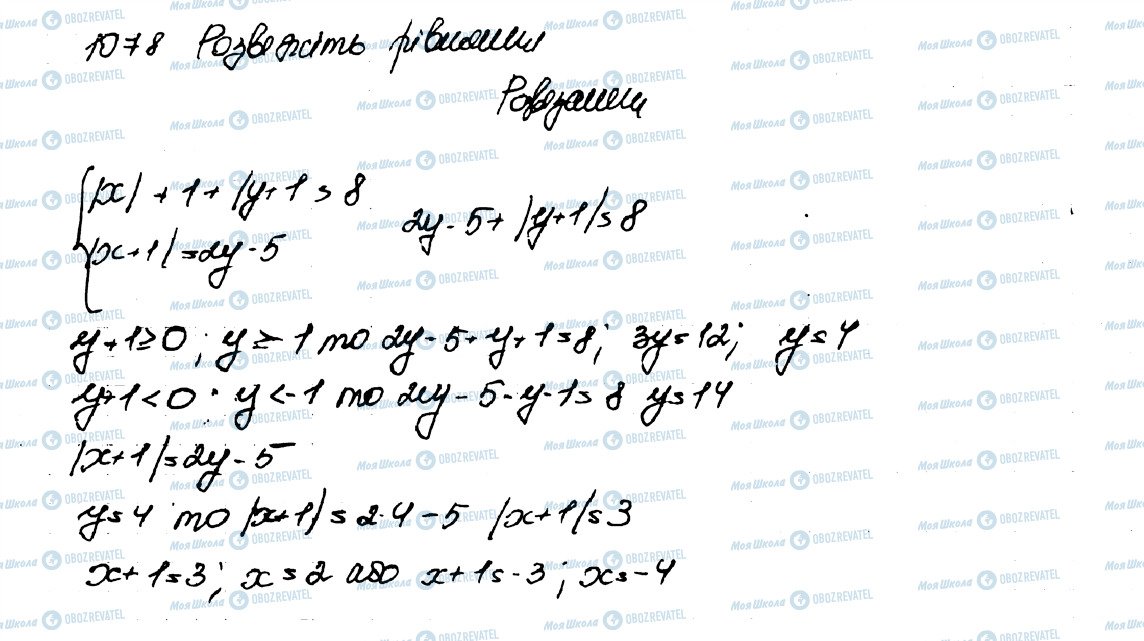 1078 Розвяжіть рівняння
Розвязання
|x| + 1 + |y + 1 = 8
|x + 1| = 2y - 5
2y - 5 + |y + 1| = 8
y + 1 ≥ 0; y ≥ - 1 то 2y - 5 + y + 1 = 8; 3y = 12; y = 4
y + 1 < 0 · y < - 1 то 2y - 5 - y - 1 = 8 y = 14
|x + 1| = 2y - 5
y = 4 то |x + 1| = 2 · 4 - 5 |x + 1| = 3
x + 1 = 3; x = 2 або x + 1 = - 3; x = - 4
Моя Школа OBOZREVATEL